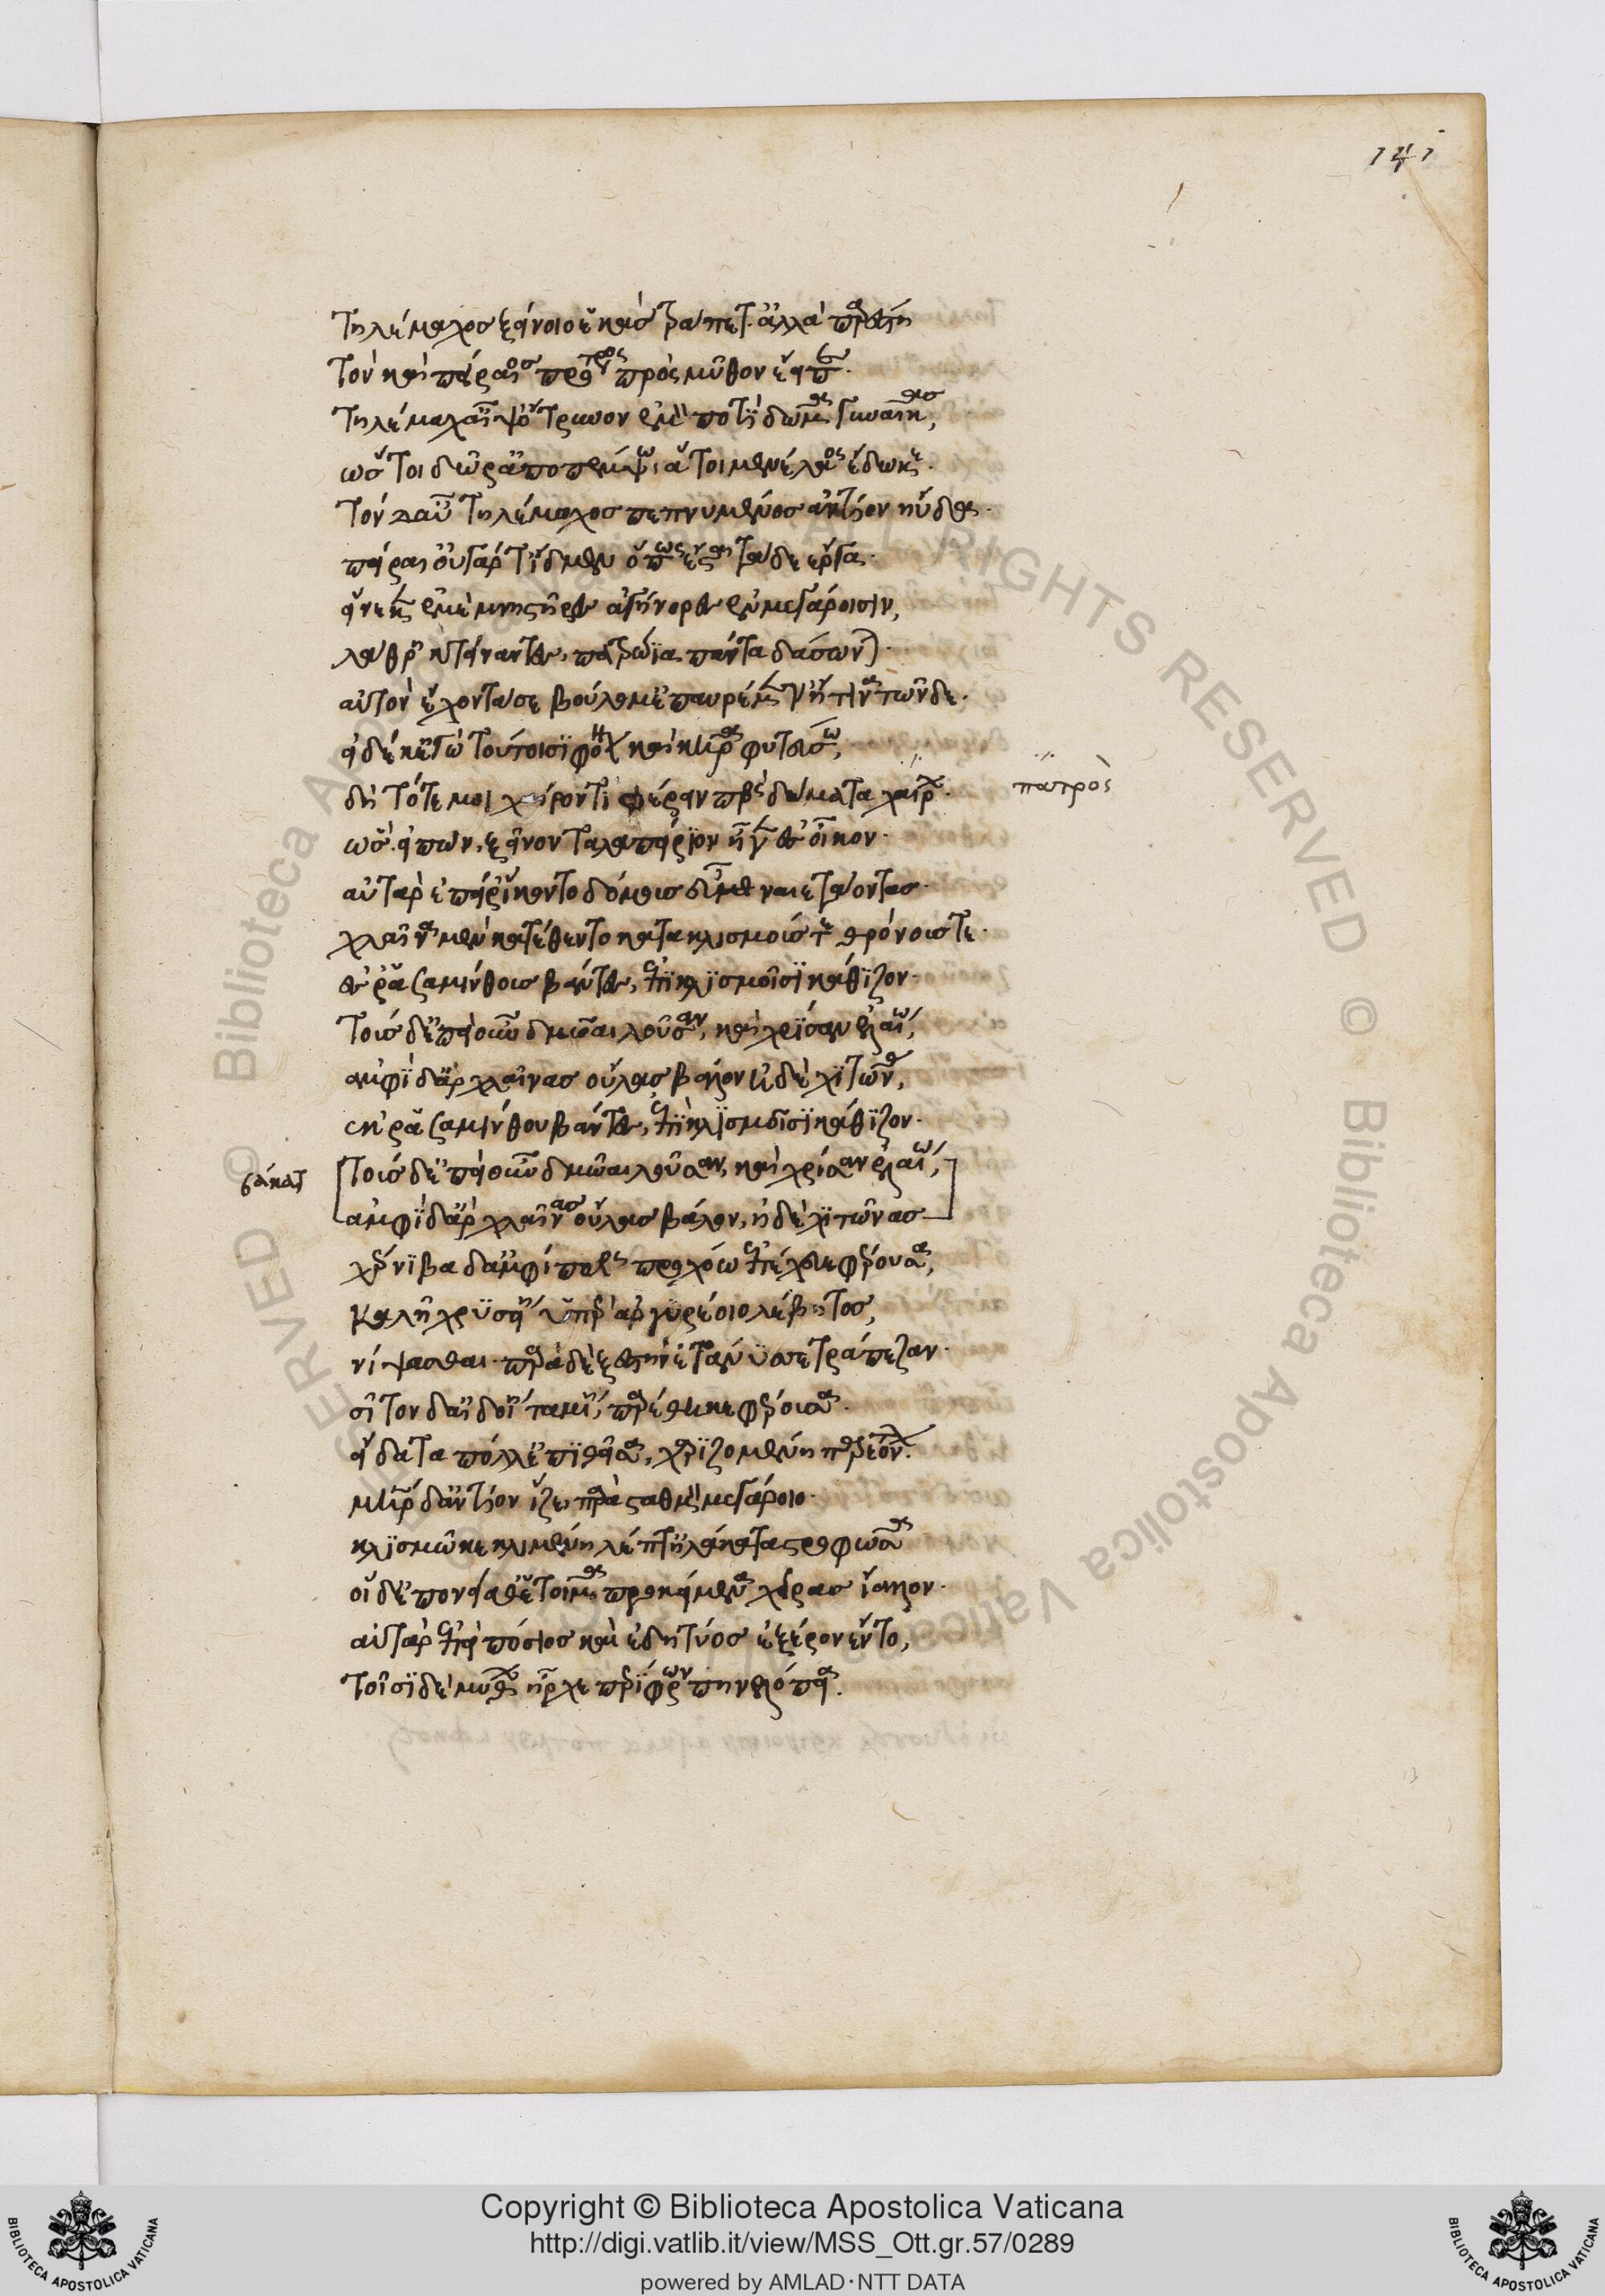 141
Τηλέμαχος ξείνοιο ἑκὰς τράπετ. ἀλλὰ παρέστη
τὸν καὶ πείραιος πρότερος πρὸς μῦθον ἔειπε.
Τηλέμαχ αἶψ ὄτρυνον ἐμὸν ποτὶ δῶμα γυναῖκας,
ὥς τοι δῶρ ἀποπέμψω ἅ τοι μενέλαος ἔδωκε.
Τὸν δ αὖ Τηλέμαχος πεπνυμένος ἀντίον ηὔδα.
πείραι οὐ γάρ τ ἴδμεν ὅπως ἔσται τάδε ἔργα.
εἴ κεν ἐμὲ μνηστῆρες ἀγήνορες ἐν μεγάροισιν,
λάθρη κτείναντες, πατρώϊα πάντα δάσωνται.
αὐτὸν ἔχοντά σε βούλομ ἐπαυρέμεν ἤ τινα τῶνδε.
εἰ δέ κ ἐγὼ τούτοισι φόνον καὶ κῆρα φυτεύσω,
δὴ τότε μοι χαίροντι φέρειν πρὸς δώματα χαίρων.
πατρὸς
ὣς εἰπὼν, ξεῖνον ταλαπείριον ἦγεν ἐς οἶκον.
αὐτὰρ ἐπεί ῥ ἵκοντο δόμους εὖ ναιετάοντας.
χλαίνας μὲν κατέθεντο κατὰ κλισμούς τε θρόνους τε.
ἐς ῥ ἀσαμίνθους βάντες, ἐπὶ κλισμοῖσι κάθιζον.
Τοὺς δ ἐπεὶ οὖν δμωαὶ λοῦσαν, καὶ χρῖσαν ἐλαίω,
ἀμφὶ δ ἄρ χλαίνας οὔλας βάλον ἠδὲ χιτῶνας,
ἐκ ῥ ἀσαμίνθου βάντες, ἐπὶ κλισμοῖσι κάθιζον.
Τοὺς δ ἐπεὶ οὖν δμωαὶ λοῦσαν, καὶ χρῖσαν ἐλαίω,
ἀμφὶ δ ἄρ χλαίνας οὔλας βάλον, ἠδὲ χιτῶνας
χέρνιβα δ ἀμφίπολος προχόω ἐπέχευε φέρουσα,
καλῆ χρυσείη ὑπὲρ ἀργυρέοιο λέβητος,
νίψασθαι. παρὰ δὲ ξεστὴν ἐτάνυσσε τράπεζαν.
σῖτον δ αἰδοίη ταμίη παρέθηκε φέρουσα.
εἴδατα πόλλ ἐπιθεῖσα, χαριζομένη παρεόντων.
μήτηρ δ ἀντίον ἷζε παρὰ σταθμὸν μεγάροιο.
κλισμῶ κεκλιμένη λέπτ ἠλάκατα στροφῶσα
οἱ δ ἐπ ὀνείαθ ἑτοῖμα προκείμενα χεῖρας ἴαλλον.
αὐτὰρ ἐπεὶ πόσιος καὶ ἐδητύος ἐξ ἔρον ἕντο,
τοῖσι δὲ μύθων ἦρχε περίφρων πηνελόπεια.
Copyright © Biblioteca Apostolica Vaticana
http://digi.vatlib.it/view/MSS_Ott.gr.57/0289
powered by AMLAD·NTT DATA